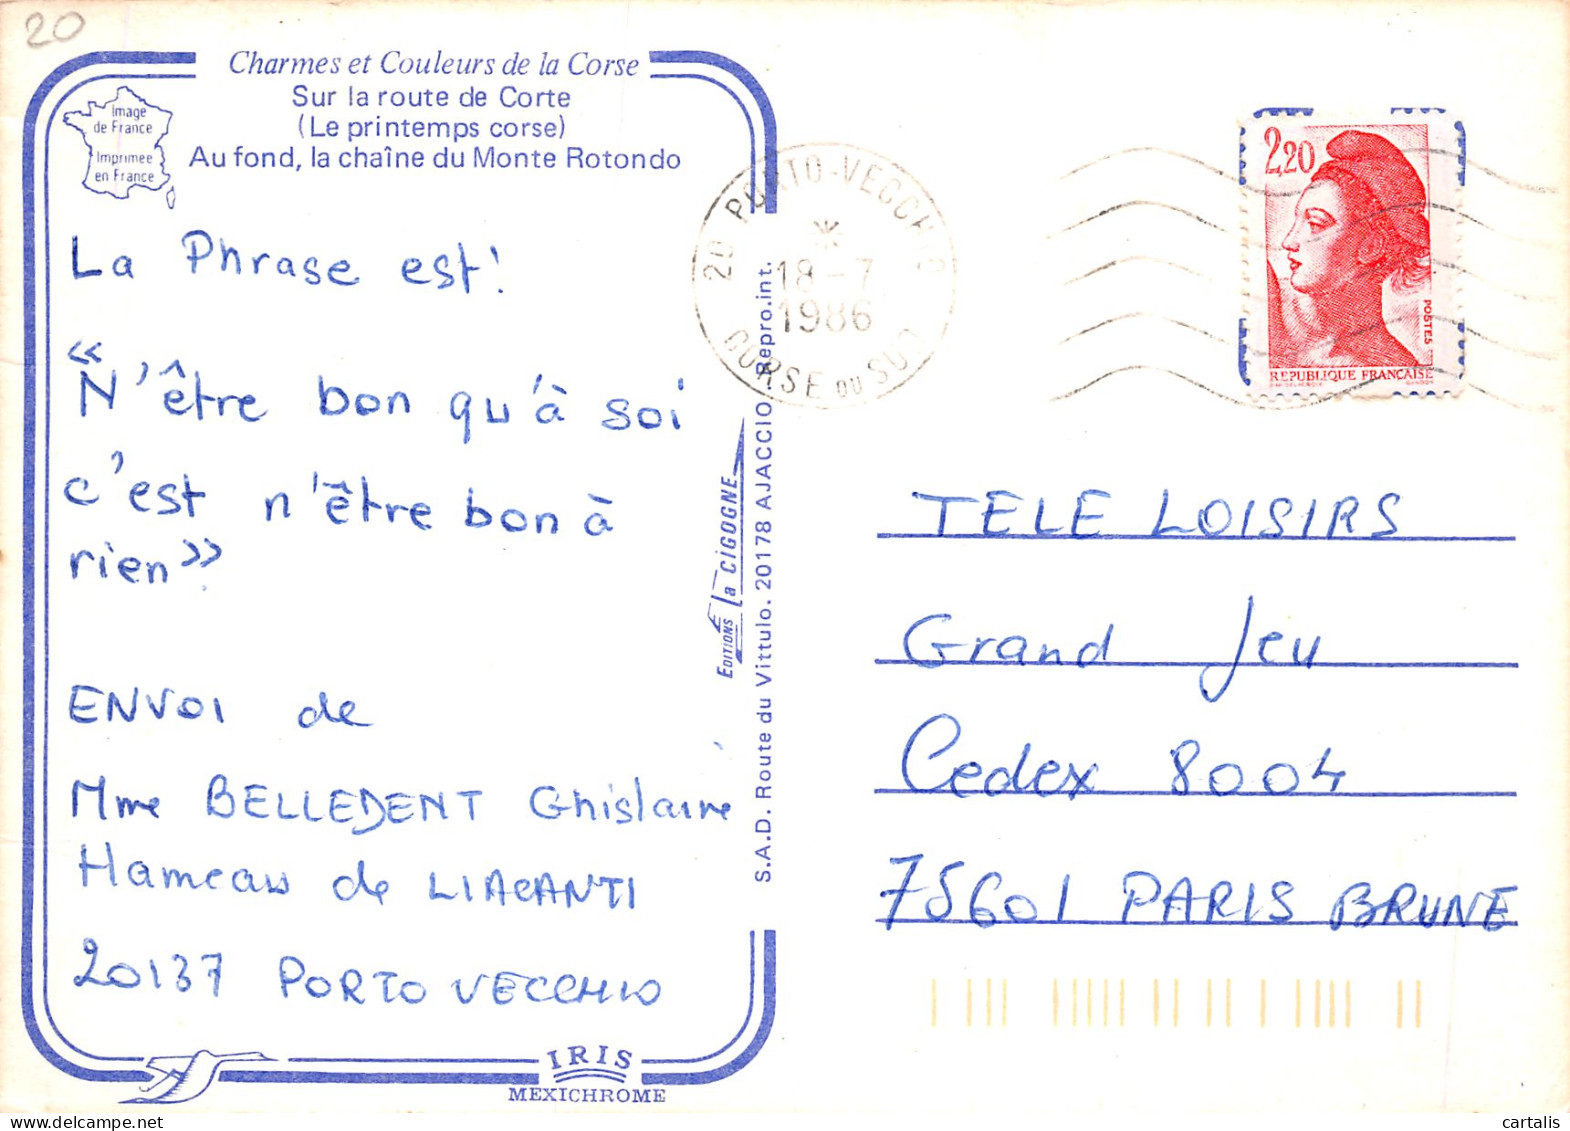 20
Charmes et Couleurs de la Corse
Sur la route de Corte
(Le printemps corse)
Au fond, la chaîne du Monte Rotondo
Image
de France
Imprimée
en France
La Phrase est!
"N'être bon qu'à soi
c'est n'être bon à
rien"
ENVOI de
Mme BELLEDENT Ghislaine
Hameau de LIACANTI
20137 PORTO VECCHIO
IRIS
MEXICHROME
EDITIONS La CIGOGNE
S.A.D. Route du Vittulo. 20178 AJACCIO - Repro.int.
20 PORTO-VECCHIO
18-7
1986
CORSE DU SUD
2,20
POSTES
REPUBLIQUE FRANÇAISE
GANDON
TELE LOISIRS
Grand Jeu
Cedex 8004
75601 PARIS BRUNE
cartalis